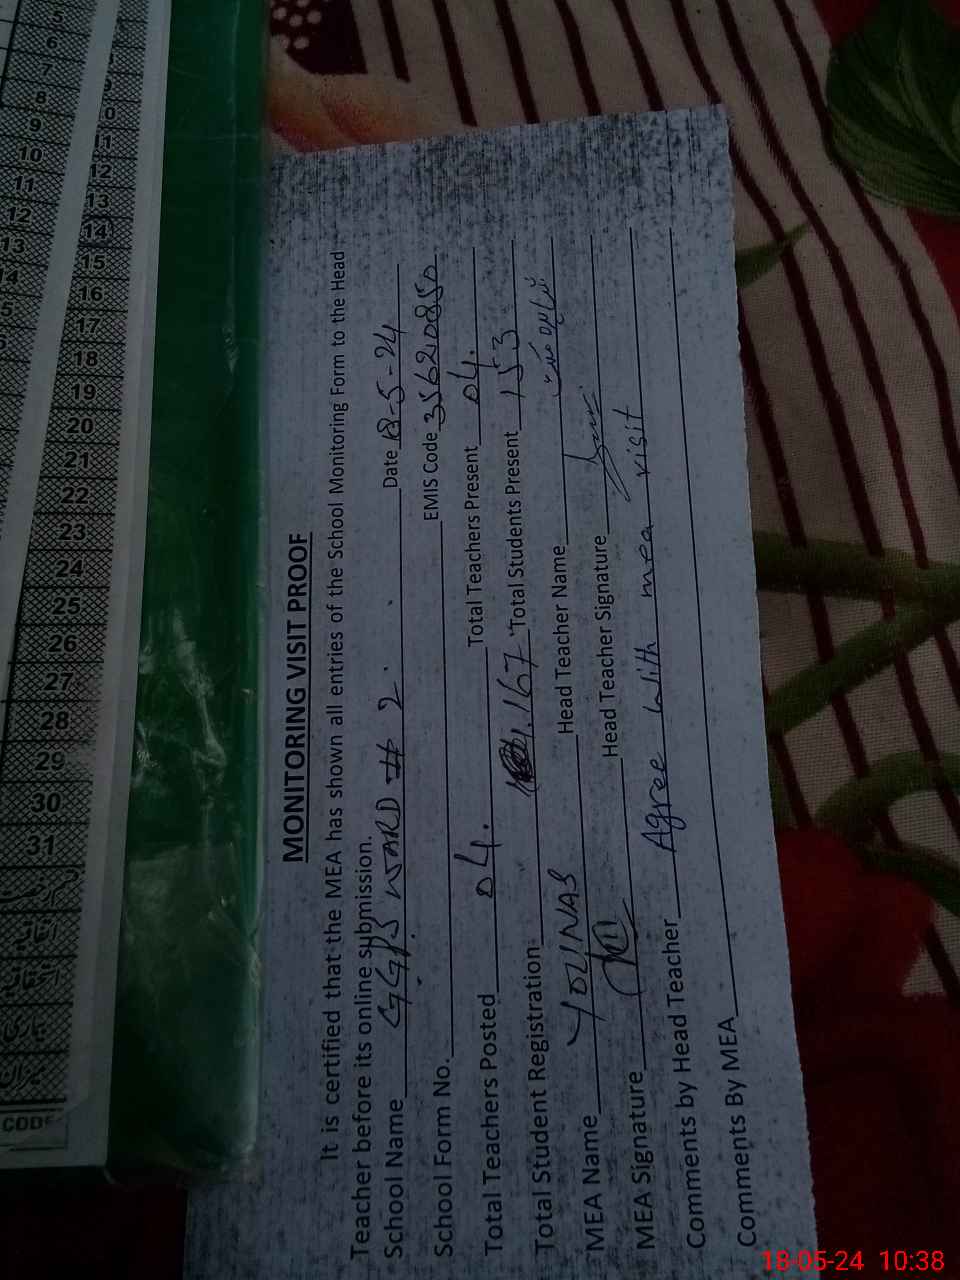 MONITORING VISIT PROOF
It is certified that the MEA has shown all entries of the School Monitoring Form to the Head
Teacher before its online submission.
School Name GGPS WARD # 2. Date 18-5-24
School Form No. EMIS Code 35620850
Total Teachers Posted 04. Total Teachers Present 04.
Total Student Registration 167 Total Students Present 153
MEA Name YOUNAS Head Teacher Name
MEA Signature Head Teacher Signature
Comments by Head Teacher Agree with mea visit
Comments By MEA
5
6
7
8
9
10
11
12
13
14
5
10
11
12
13
14
15
16
17
18
19
20
21
22
23
24
25
26
27
28
29
30
31
میزان
CODE
18-05-24 10:38